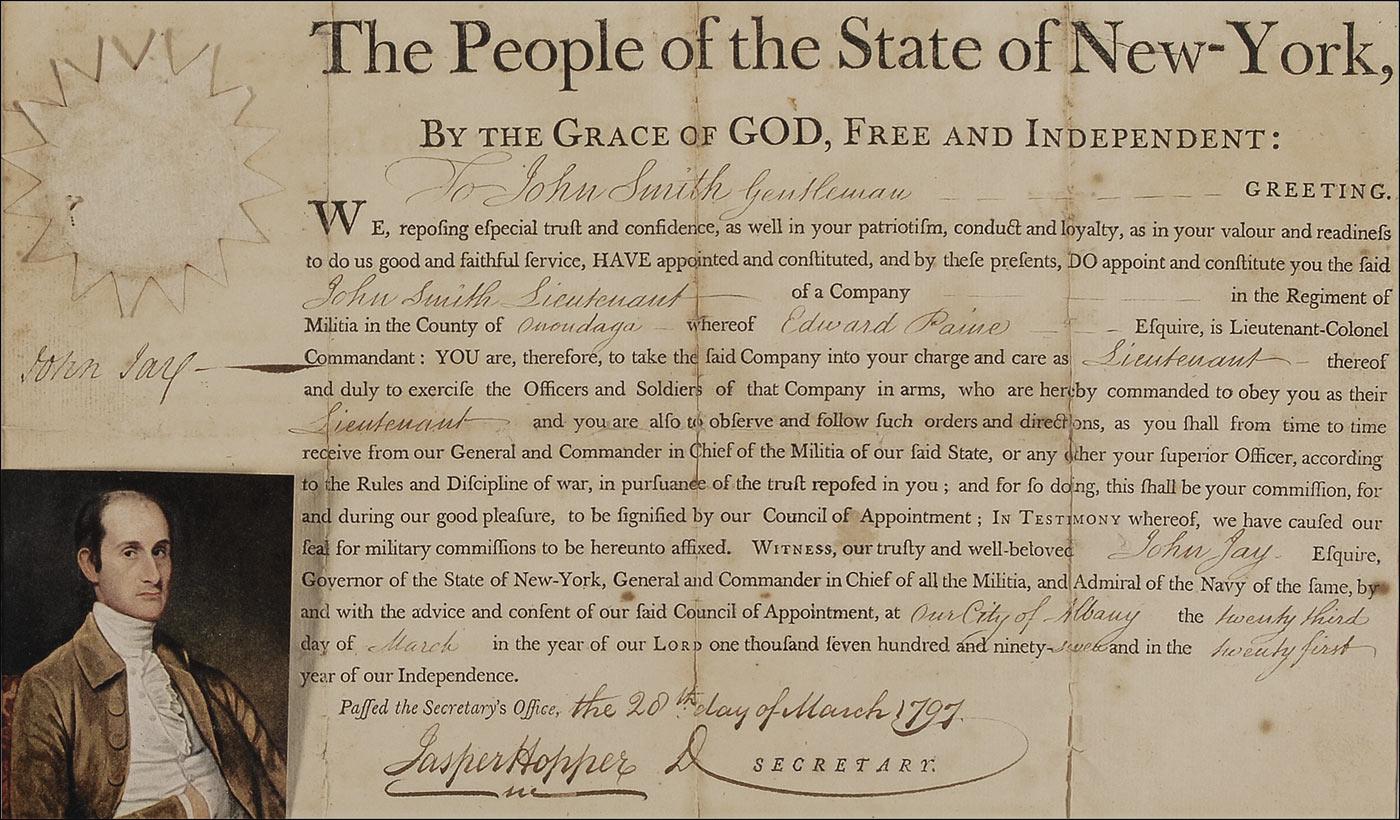 The People of the State of New-York,
BY THE GRACE OF GOD, FREE AND INDEPENDENT:
To John Smith Gentleman GREETING.
WE, repoſing eſpecial truſt and confidence, as well in your patriotiſm, conduct and loyalty, as in your valour and readineſs
to do us good and faithful ſervice, HAVE appointed and conſtituted, and by theſe preſents, DO appoint and conſtitute you the ſaid
John Smith Lieutenant of a Company in the Regiment of
Militia in the County of Onondaga whereof Edward Paine Eſquire, is Lieutenant-Colonel
Commandant: YOU are, therefore, to take the ſaid Company into your charge and care as Lieutenant thereof
John Jay
and duly to exerciſe the Officers and Soldiers of that Company in arms, who are hereby commanded to obey you as their
Lieutenant and you are alſo to obſerve and follow ſuch orders and directions, as you ſhall from time to time
receive from our General and Commander in Chief of the Militia of our ſaid State, or any other your ſuperior Officer, according
to the Rules and Diſcipline of war, in purſuance of the truſt repoſed in you; and for ſo doing, this ſhall be your commiſſion, for
and during our good pleaſure, to be ſignified by our Council of Appointment; IN TESTIMONY whereof, we have cauſed our
ſeal for military commiſſions to be hereunto affixed. WITNESS, our truſty and well-beloved John Jay Eſquire,
Governor of the State of New-York, General and Commander in Chief of all the Militia, and Admiral of the Navy of the ſame, by
and with the advice and conſent of our ſaid Council of Appointment, at our City of Albany the twenty third
day of March in the year of our LORD one thouſand ſeven hundred and ninety-seven and in the twenty first
year of our Independence.
Paſſed the Secretary's Office, the 28th day of March 1797.
Jasper Hopper D SECRETARY.